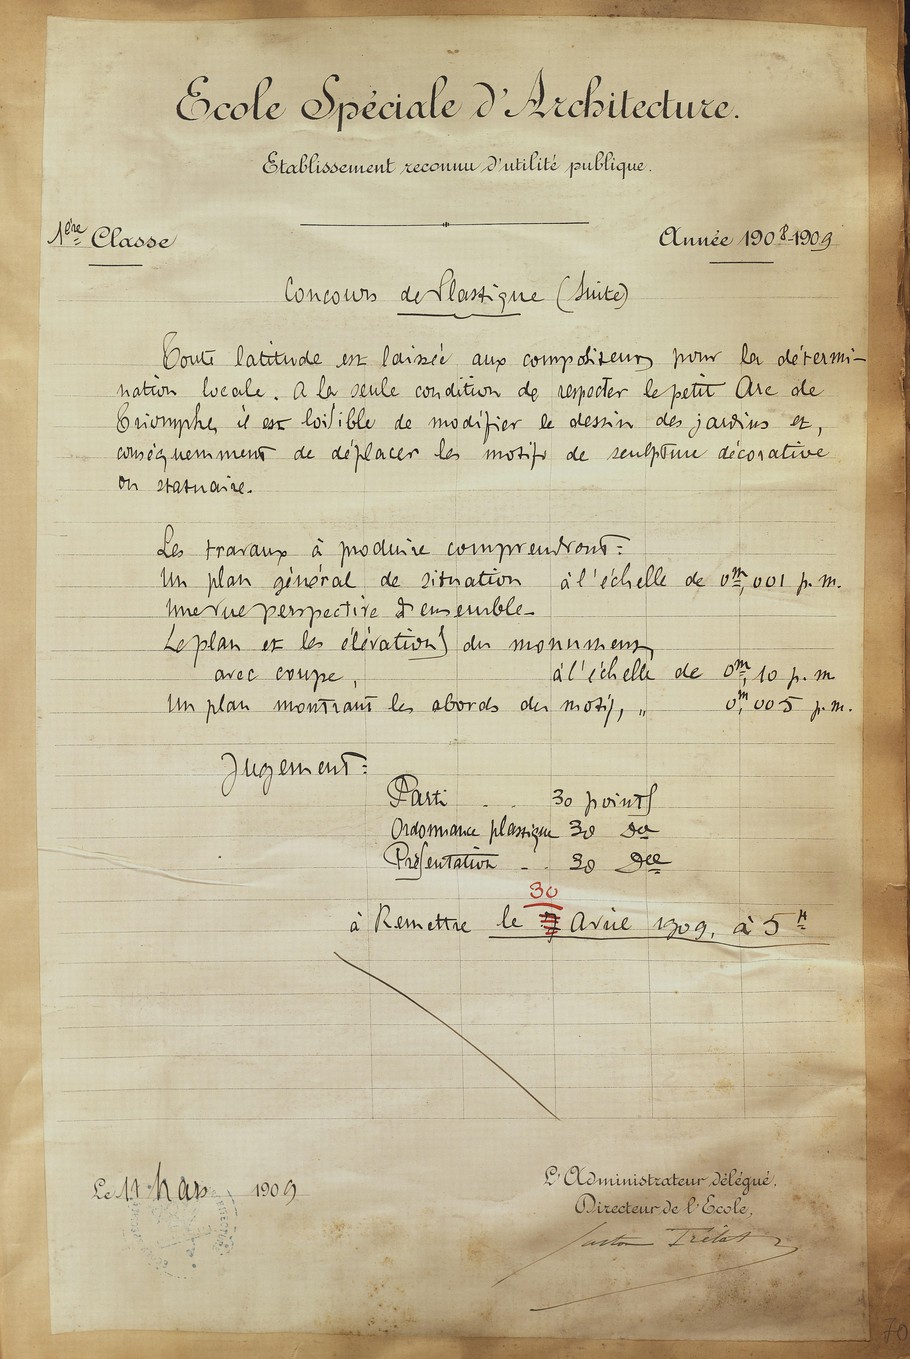 Ecole Spéciale d'Architecture.
Etablissement reconnu d'utilité publique.
1ère Classe
Année 1908-1909
Concours de Plastique (Suite)
Toute latitude est laissée aux compositeurs pour la détermi-
nation locale. A la seule condition de respecter le petit Arc de
Triomphe, il est loisible de modifier le dessin des jardins et,
conséquemment de déplacer les motifs de sculpture décorative
ou statuaire.
Les travaux à produire comprendront:
Un plan général de situation à l'échelle de 0m,001 p.m.
Une vue perspective d'ensemble
Le plan et les élévations du monument,
avec coupe, à l'échelle de 0m,10 p.m
Un plan montrant les abords du motif, " 0m,005 p.m.
Jugement:
Parti . . 30 points
Ordonnance plastique 30 do
Présentation - . 30
30
à Remettre le Avril 1909, à 5 H
Le 11 Mars 1909
L'Administrateur délégué.
Directeur de l'Ecole.
Gaston Trélat
70